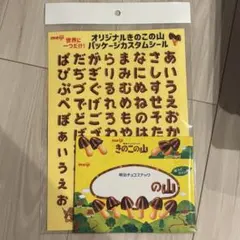 meiji
世界に
一つだけ!
オリジナルきのこの山
パッケージカスタムシール
あいうえおか
さしすせそた
なにぬねのは
まみむめもや
らりるれろ
がぎぐげご
だぢづでどば
ぱぴぷぺぽぁぃぅぇぉ
meiji
きのこの山
meiji
明治チョコスナック
の山